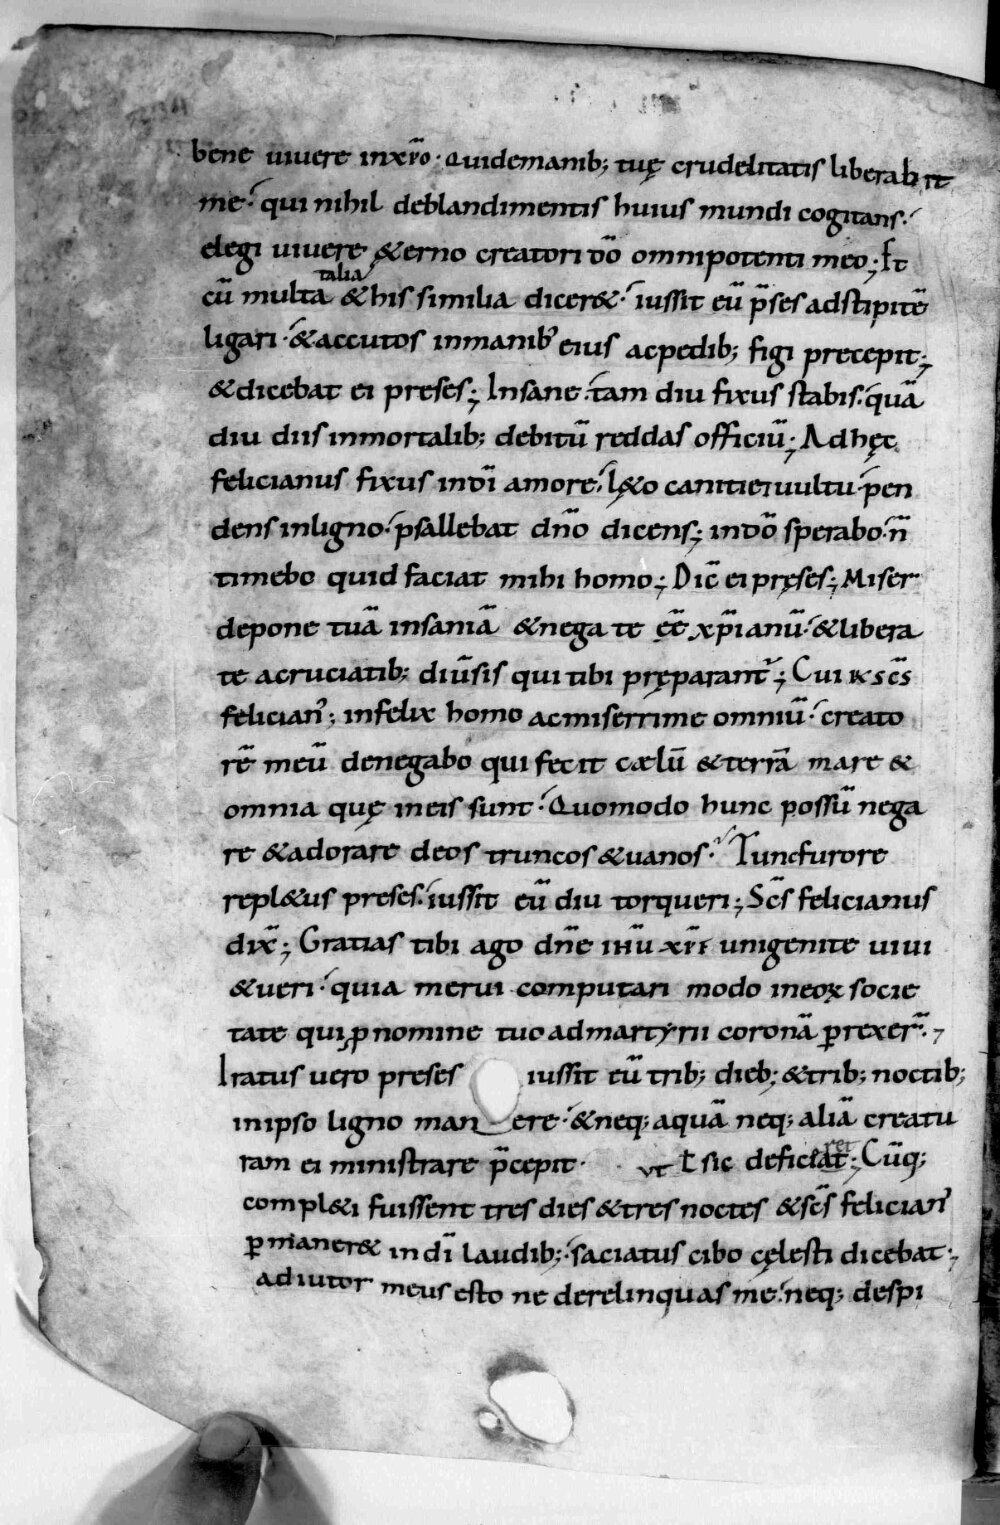 bene uiuere inxr̄o· Quidemanib; tuę crudelitatis liberabit
me· qui nihil deblandimentis huius mundi cogitans·
elegi uiuere &erno creatori dō omnipotenti meo; Et
cū multa talia & his similia dicer&· iussit eū p̄ses adstipitē
ligari· & accutos inmanib' eius acpedib; figi precepit;
& dicebat ei preses; Insane· tam diu fixus stabis· quā
diu diis inmortalib; debitū reddas officiū; Ad hęc
felicianus fixus indī amore· l&o canitiei uultu· pen
dens inligno· psallebat dn̄o dicens; indō sperabo· n̄
timebo quid faciat mihi homo; Dic̄ ei pręses; Miser
depone tuā insaniā & nega te ēe xp̄ianū· & libera
te acruciatib; diūsis qui tibi pręparant̄; Cui sc̄s
felician'; infelix homo acmiserrime omniū· creato
rē meū denegabo qui fecit cælū & terrā mare &
omnia quę ineis sunt· Quomodo hunc possū nega
re & adorare deos truncos & uanos· Tunc furore
repl&us preses· iussit eū diu torqueri; Sc̄s felicianus
dix̄; Gratias tibi ago dn̄e ihū xr̄i unigenite uiui
& ueri· quia merui computari modo ineoꝝ socie
tate qui ꝓ nomine tuo admartyrii coronā ꝑrexer̄;
Iratus uero preses iussit eū trib; dieb; & trib; noctib;
inipso ligno manere· & neq; aquā neq; aliā creatu
ram ei ministrare p̄cepit· ut sic deficiat; Cūq;
compl&i fuissent tres dies & tres noctes & sc̄s felician'
ꝑmaner& in dī laudib; saciatus cibo cęlesti dicebat;
adiutor meus esto ne derelinquas me· neq; despi